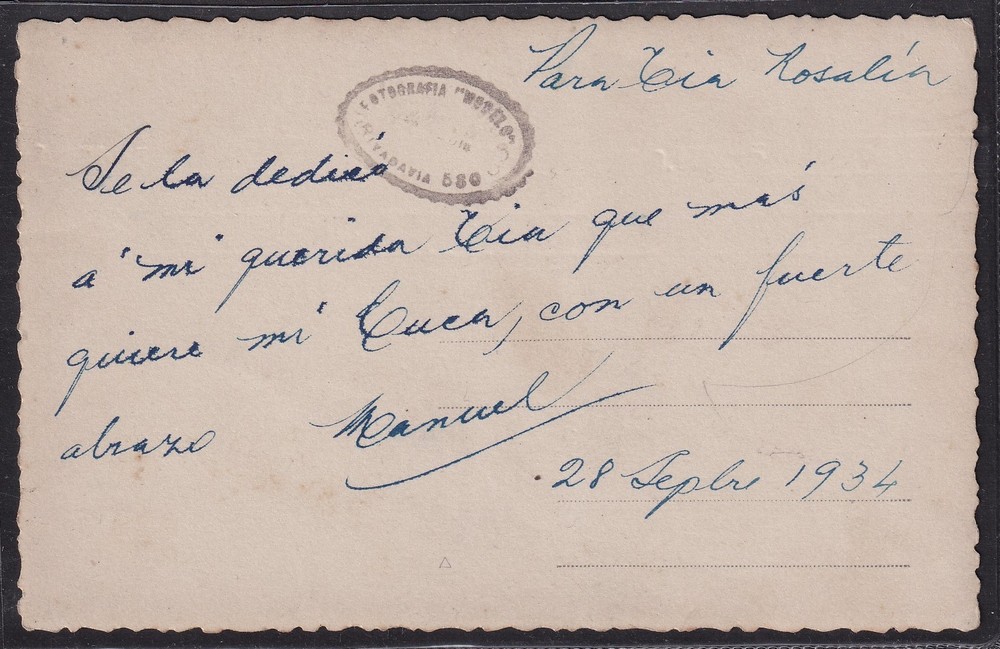 Para Tia Rosalía
FOTOGRAFIA "MODELO"
RIVADAVIA 580
Se la dedico
á mi querida Tia que más
quiere mi Cuca, con un fuerte
abrazo Manuel
28 Sepbre 1934